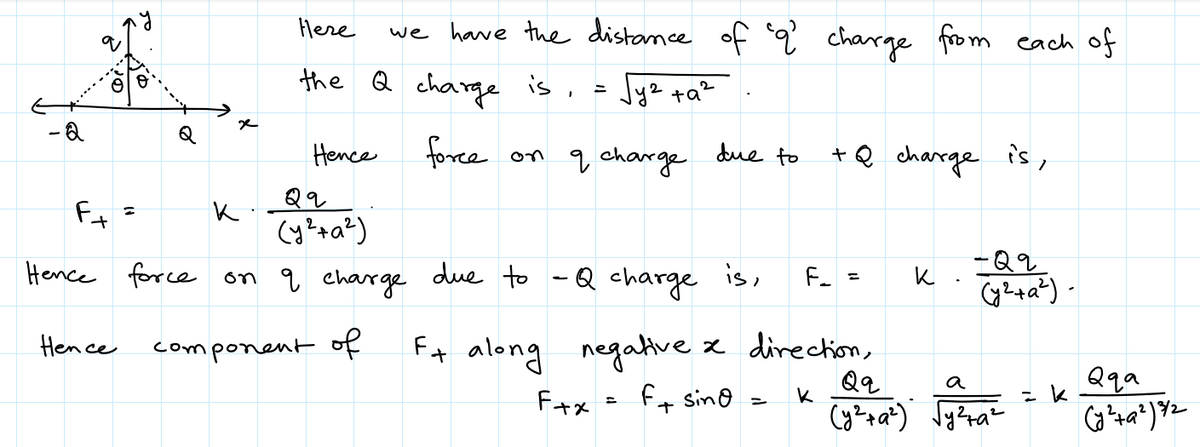 y
q
Here we have the distance of 'q' charge from each of
θ θ
the Q charge is, = √y² + a² .
-Q Q x
Hence force on q charge due to + Q charge is,
F₊ = K · Qq / (y²+a²)
Hence force on q charge due to - Q charge is, F₋ = K · -Qq / (y²+a²) .
Hence component of F₊ along negative x direction,
F₊ₓ = F₊ sinθ = K Qq / (y²+a²) · a / √y²+a² = K Qqa / (y²+a²)^3/2